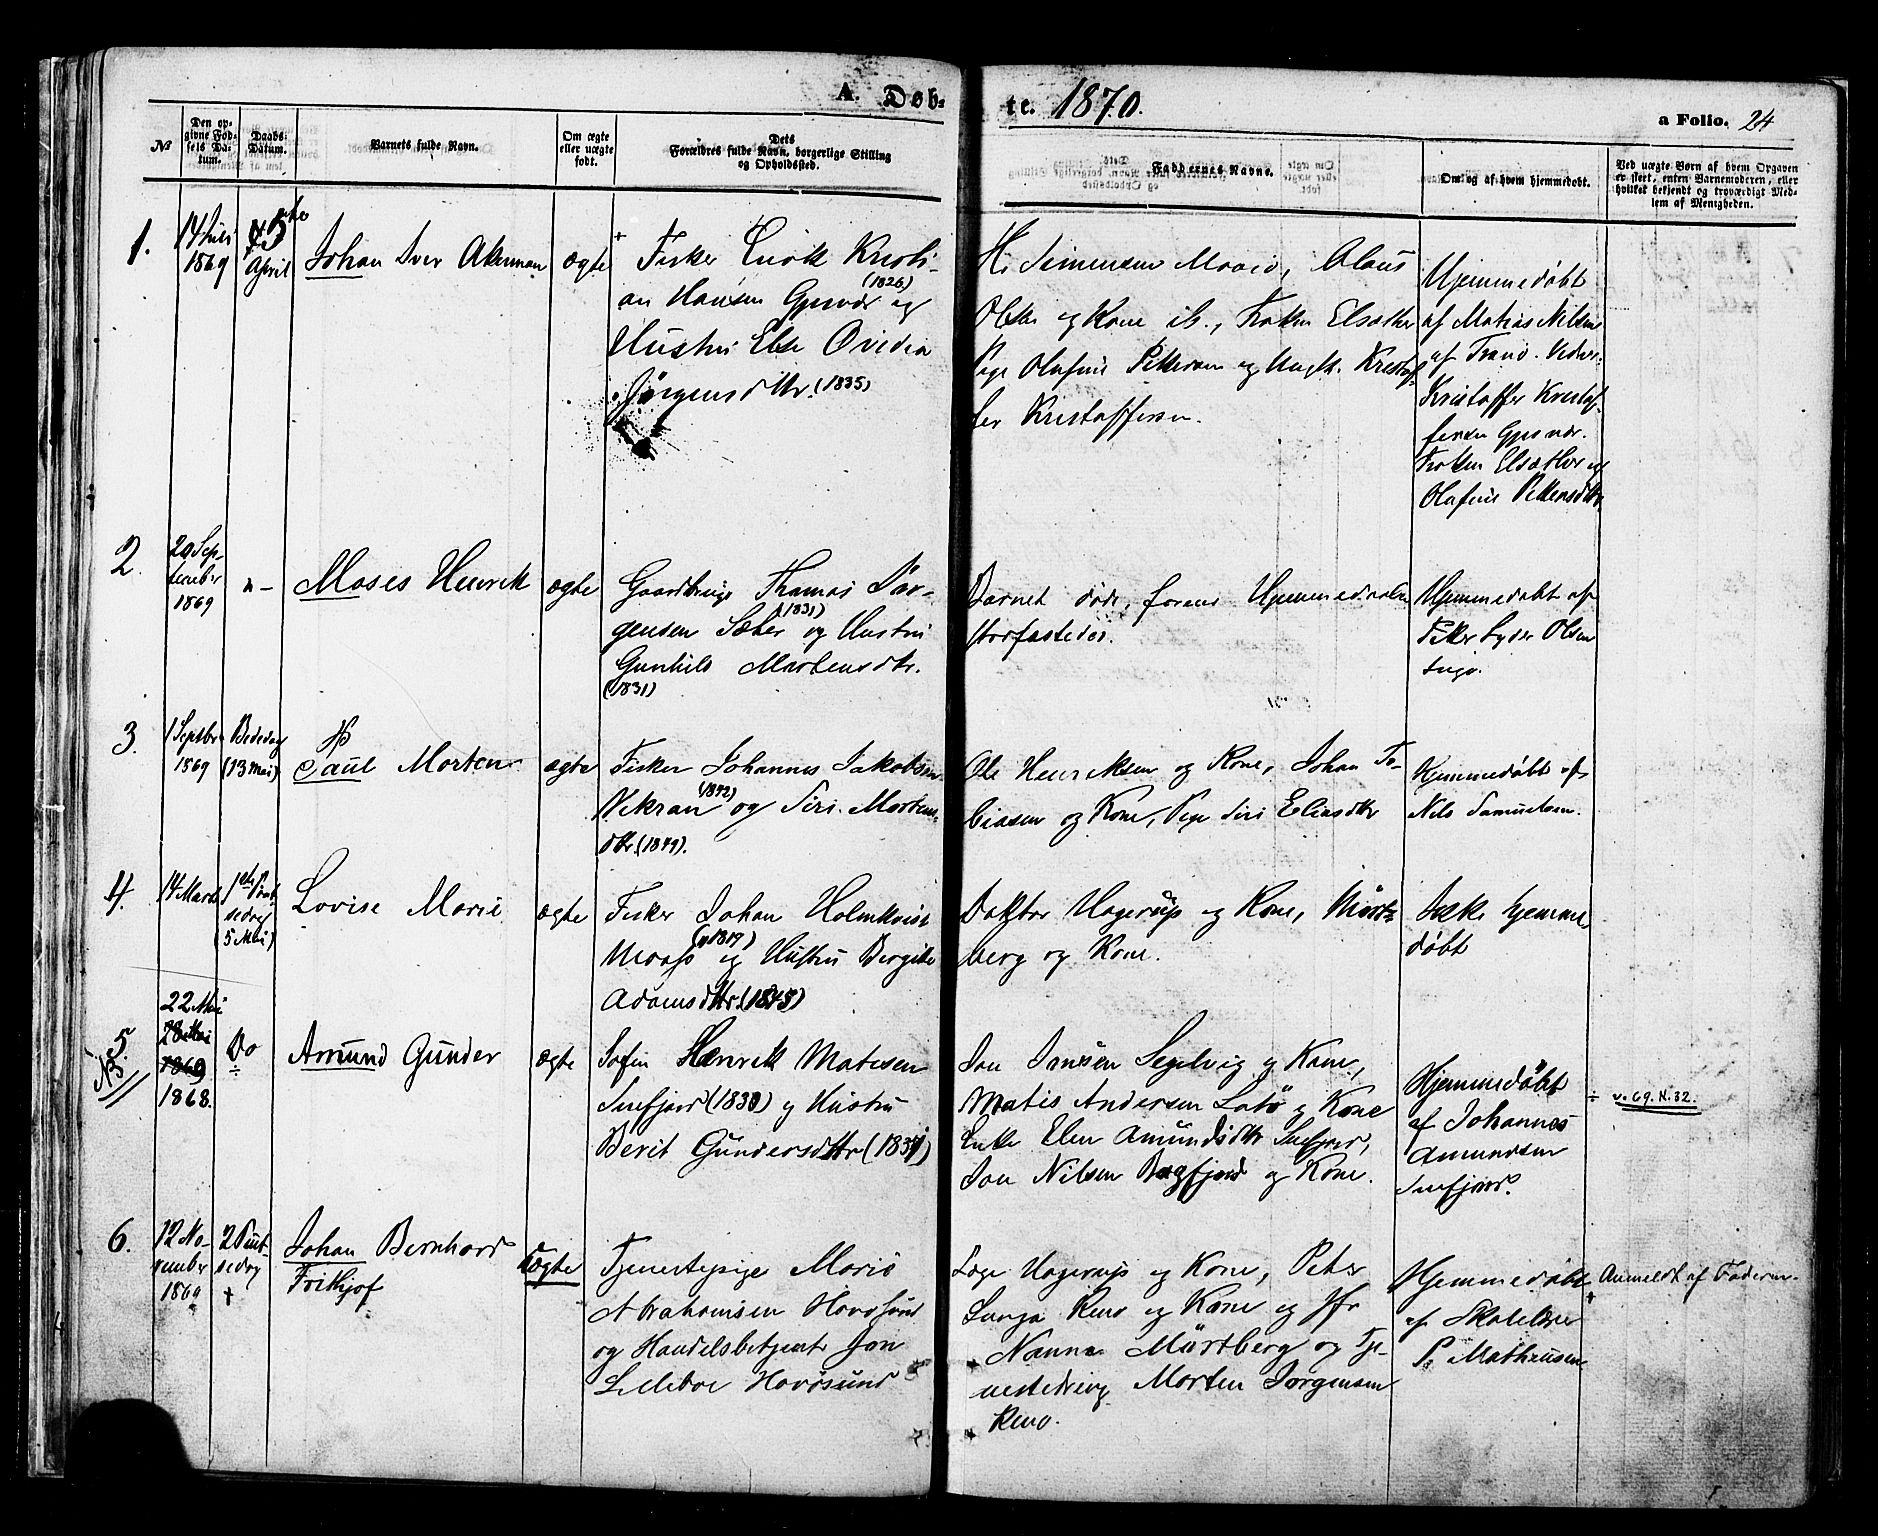 A. Døb-
te. 1870.
a Folio. 24
№
Den op-
givne Fød-
sels Da-
tum.
Daabs-
Datum.
Barnets fulde Navn.
Om ægte
eller uægte
født.
Dets
Forældres fulde Navn, borgerlige Stilling
og Opholdssted.
Faddernes Navne.
Om og af hvem hjemmedøbt.
Ved uægte Børn af hvem Opgaven
er skeet, enten Barnemoderen, eller
hvilket bekjendt og troværdigt Med-
lem af Menigheden.
1.
14 Juli
1869
5te
April
Johan Iver Akerman
ægte
Fisker Erik Kristi-
an Hansen (1826) og
Hustru Else Ovidia
Jørgensdtr. (1835)
H. Simensen Maasø, Olaus
Olsen og Kone ib., Frøken Elsæther
Pige Olufine Pettersen og Ungk. Kristof-
fer Kristoffersen.
Hjemmedøbt
af Matias Nilsen
Kristoffer Kristof-
fersen
Frøken Elsæther og
Olufine Pettersdtr.
2.
29 Sep-
tember
1869
" –
Moses Henrik
ægte
Gaardbruger Thomas Jør-
gensen Sæter (1831) og Hustru
Gunhild Mortensdtr.
(1831)
Barnet døde, førend Hjemmedaaben
stadfæstedes.
Hjemmedøbt af
Peder Olsen
3.
1 Septbr
1869
Bededag
(13 Mai)
Paul Morten
ægte
Fisker Johannes Jakobsen
Vikran (1842) og Siri Mortens-
dtr. (1849).
Ole Henriksen og Kone, Johan To-
biasen og Kone, Pige Siri Eliasdtr
Hjemmedøbt af
Nils Samuelsen.
4.
14 Marts
1ste Pint-
sedag
(5 Mai)
Lovise Marie
ægte
Fisker Johan Holmkvist
Maasø (1819) og Hustru Bergite
Adamsdtr. (1845)
Doktor Hagerup og Kone, Mørt-
berg og Kone.
Ikke hjemme
døbt
5.
NB
22 Mai
28 Mai
1869
1868.
Do
÷
Amund Gunder
ægte
Søfin Henrik Matisen
Snefjord (1830) og Hustru
Berit Gundersdtr (1837)
Jon Jonsen Segelvig og Kone,
Matis Andersen Latø og Kone
Enke Elen Amundsdtr Snefjord,
Jon Nilsen Bagfjord og Kone.
Hjemmedøbt
af Johannes
Amundsen
Snefjord.
÷ v. 69. N. 32.
6.
12 No-
vember
1869
2 Pint-
sedag
†
Johan Bernhard
Frithjof
Uægte
Tjenestepige Marie
Abrahamsen Havøsund
og Handelsbetjent Jon
Lilleboe Havøsund
Læge Hagerup og Kone, Peter
Lunga Renø og Kone og Jfr
Nanna Mørtberg og Tje-
nestedreng Morten Jørgensen
Renø.
Hjemmedøbt
af Skolelærer
P. Mathiesen
Anmeldt af Faderen.